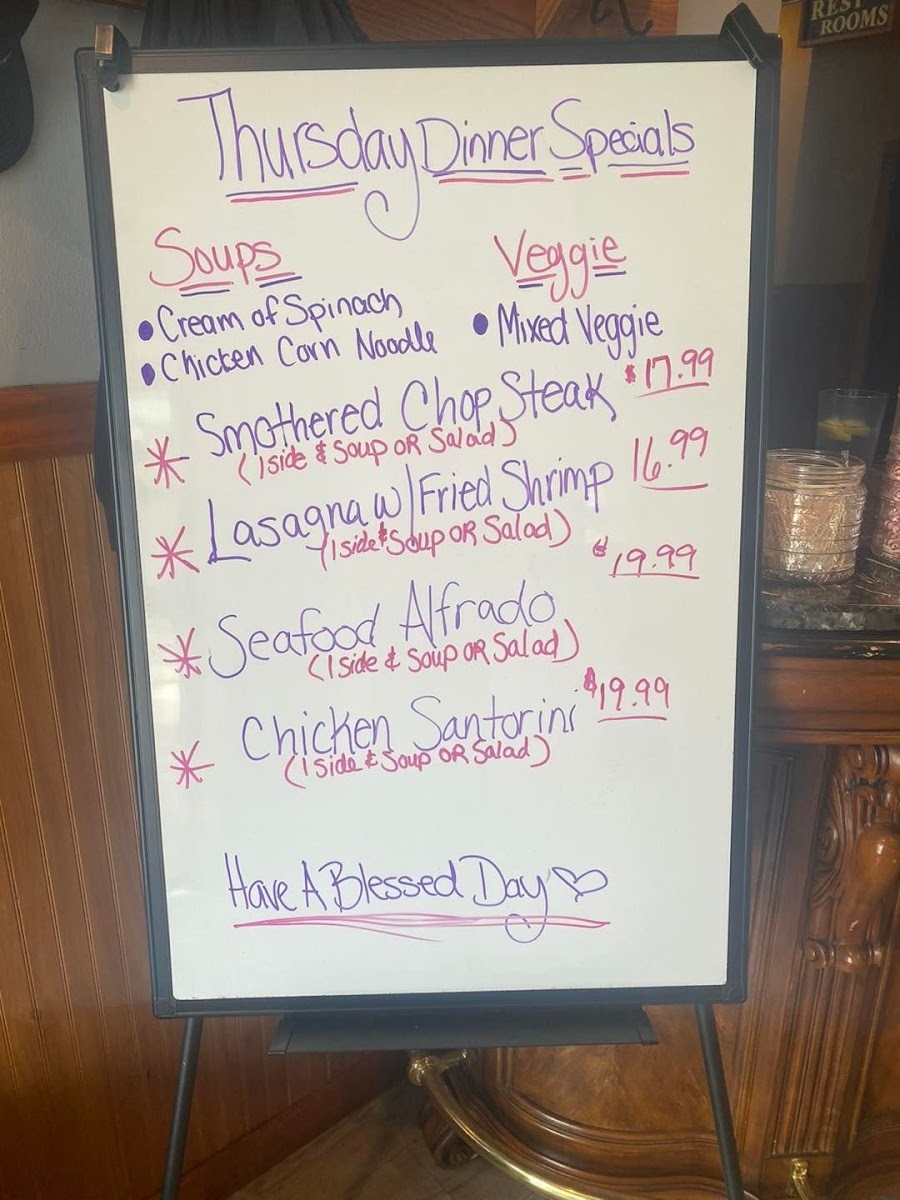 REST
ROOMS
Thursday Dinner Specials
Soups
• Cream of Spinach
• Chicken Corn Noodle
Veggie
• Mixed Veggie
* Smothered Chop Steak $17.99
(1 side & Soup OR Salad)
* Lasagna w/ Fried Shrimp 16.99
(1 side & Soup OR Salad)
$19.99
* Seafood Alfrado
(1 side & Soup OR Salad)
* Chicken Santorini $19.99
(1 side & Soup OR Salad)
Have A Blessed Day ♡